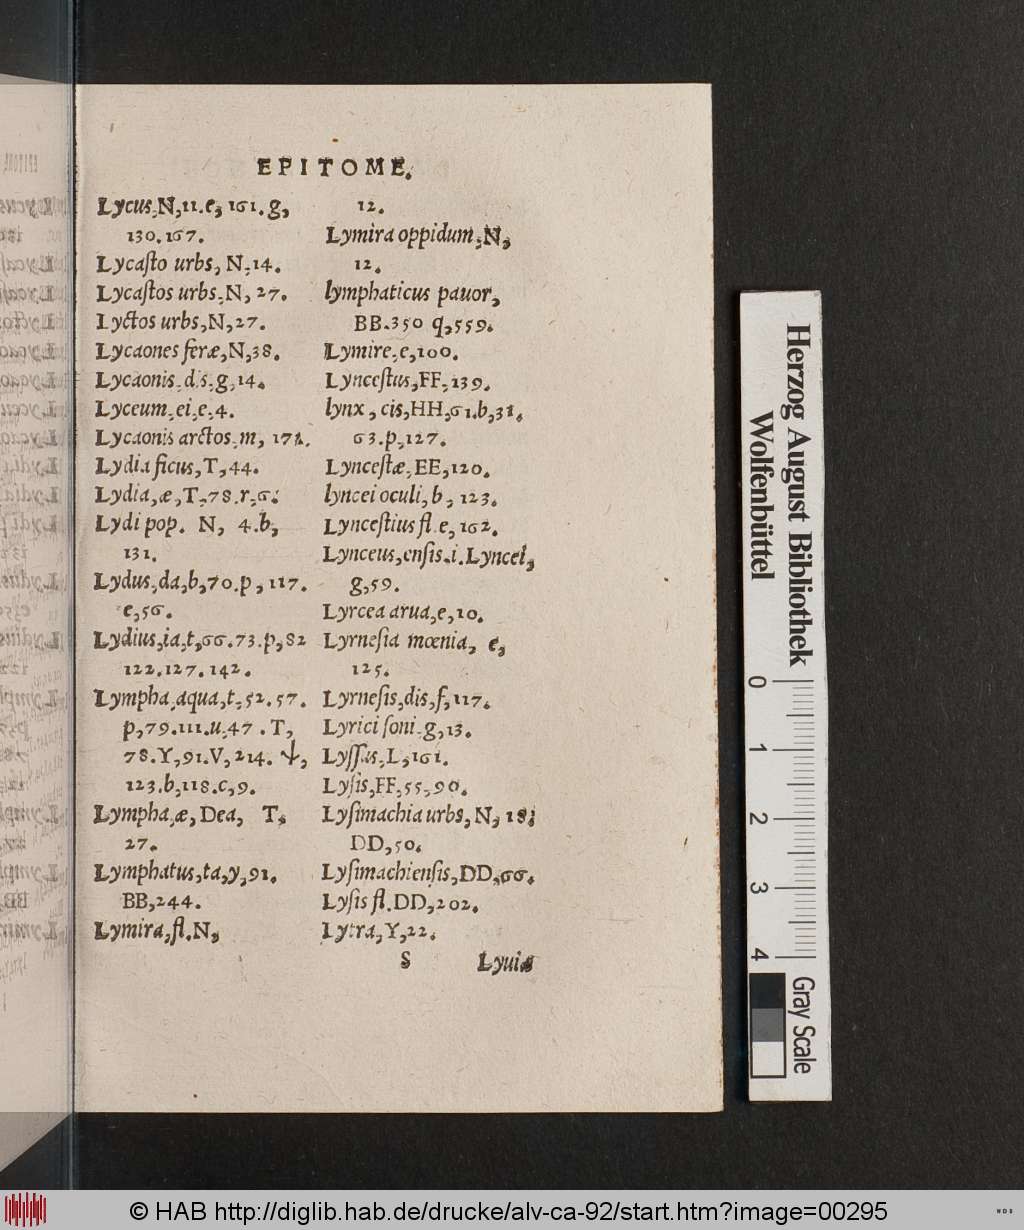 EPITOME.
Lycus,N,11.e,161.g,
130.167.
Lycaſto urbs, N,14.
Lycaſtos urbs,N, 27.
Lyctos urbs,N,27.
Lycaones feræ,N,38.
Lycaonis,dis,g,14.
Lyceum,ei,e,4.
Lycaonis arctos,m, 171.
Lydia ficus,T,44.
Lydia,æ,T,78.r,6.
Lydi pop. N, 4.b,
131.
Lydus,da,b,70.p,117.
e,56.
Lydius,ia,t,66.73.p,82
122.127.142.
Lympha,aqua,t,52.57.
p,79.111.u,47.T,
78.Y,91.V,214.
123.b,118.c,9.
Lympha,æ,Dea, T,
27.
Lymphatus,ta,y,91.
BB,244.
Lymira,fl.N,
12.
Lymira oppidum,N,
12.
lymphaticus pauor,
BB.350 q,559.
Lymire,e,100.
Lynceſtus,FF,139.
lynx, cis,HH,61.b,31.
63.p,127.
Lynceſtæ,EE,120.
lyncei oculi,b, 123.
Lynceſtius fl.e,162.
Lynceus,enſis.i.Lyncei,
g,59.
Lyrcea arua,e,10.
Lyrneſia mœnia, e,
125.
Lyrneſis,dis,f,117.
Lyrici ſoni.g,13.
Lyſſas,L,161.
Lyſis,FF,55,90.
Lyſimachia urbs,N,18.
DD,50.
Lyſimachienſis,DD,66.
Lyſis fl.DD,202.
Lytra,Y,22.
S Lyuia
Herzog August Bibliothek
Wolfenbüttel
0 1 2 3 4
Gray Scale
© HAB http://diglib.hab.de/drucke/alv-ca-92/start.htm?image=00295